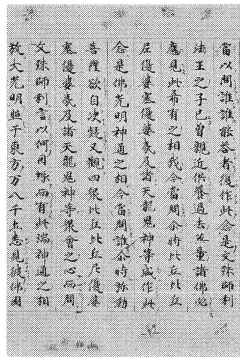 當以問誰誰能答者復作此念是文殊師利
法王之子已曾親近供養過去無量諸佛必
應見此希有之相我今當問尒時比丘比丘
尼優婆塞優婆夷及諸天龍鬼神等咸作此
念是佛光明神通之相今當問誰尒時弥勒
菩薩欲自決疑又觀四衆比丘比丘尼優婆
塞優婆夷及諸天龍鬼神等衆會之心而問
文殊師利言以何因緣而有此瑞神通之相
放大光明照于東方万八千土悉見彼佛國